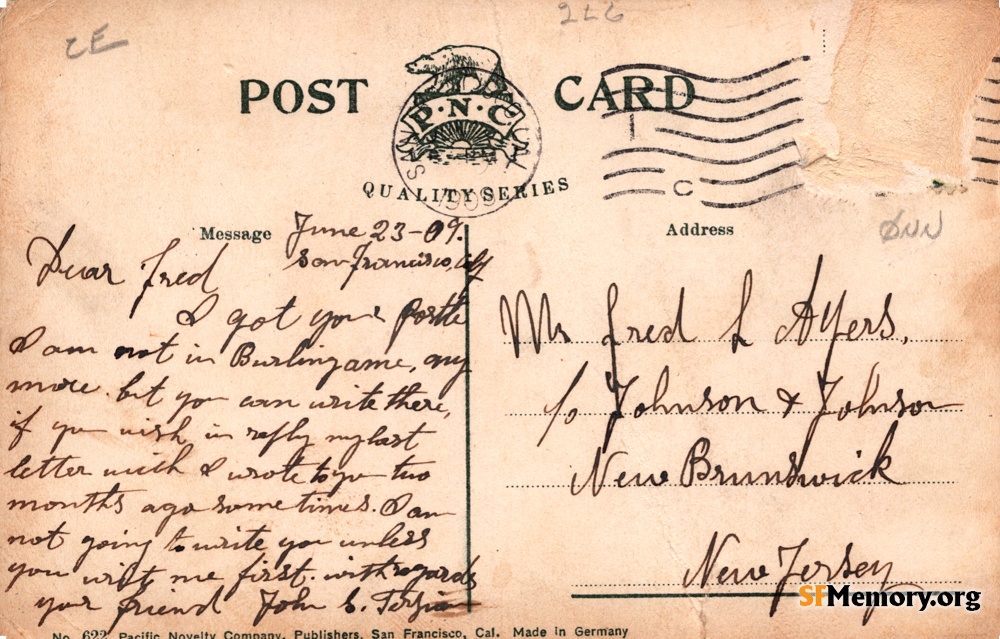 2LG
POST CARD
P·N·C
SAN CAL.
1909
C
QUALITY SERIES
Message
Address
June 23-09.
San Francisco, Cal
Dear Fred
I got your postle
I am not in Burlingame, any
more. but you can write there,
if you wish, in reply my last
letter wich I wrote to you two
months ago sometimes. I am
not going to write you unless
you writ me first. with regards
your friend John S.
Mr Fred L Ayers,
c/o Johnson & Johnson
New Brunswick
New Jersey
SFMemory.org
No. 622 Pacific Novelty Company, Publishers, San Francisco, Cal. Made in Germany